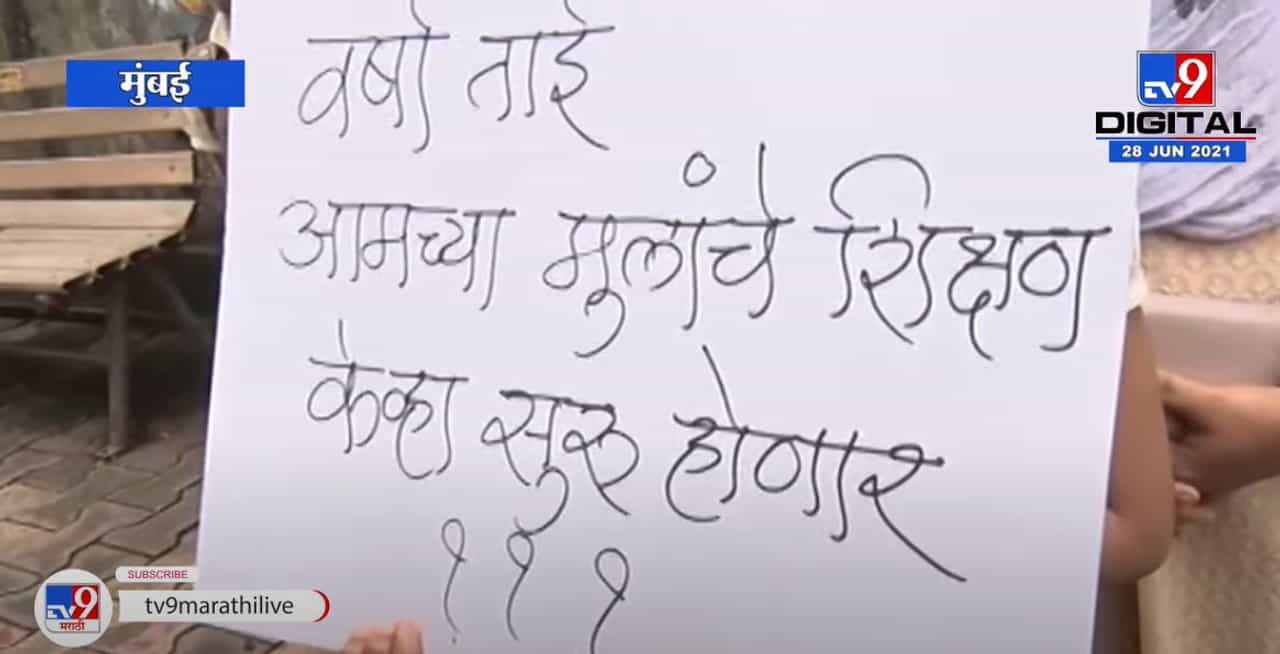 मुंबई
tv9
DIGITAL
28 JUN 2021
वर्षा ताई
आमच्या मुलांचे शिक्षण
केव्हा सुरु होणार
???
SUBSCRIBE
tv9 मराठी
tv9marathilive